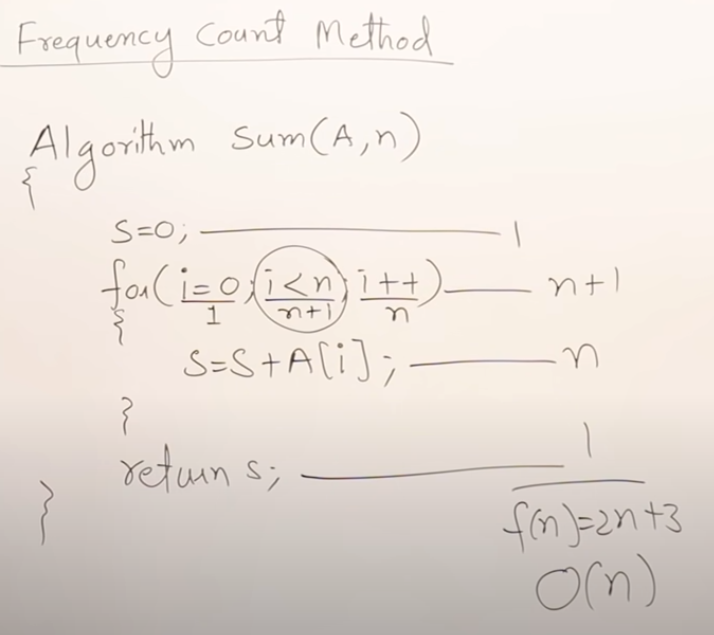 Frequency Count Method
Algorithm Sum(A,n)
{
S=0; 1
for(i=0; i<n; i++) n+1
1 n+1 n
{
S=S+A[i]; n
}
return s; 1
}
f(n)=2n+3
O(n)